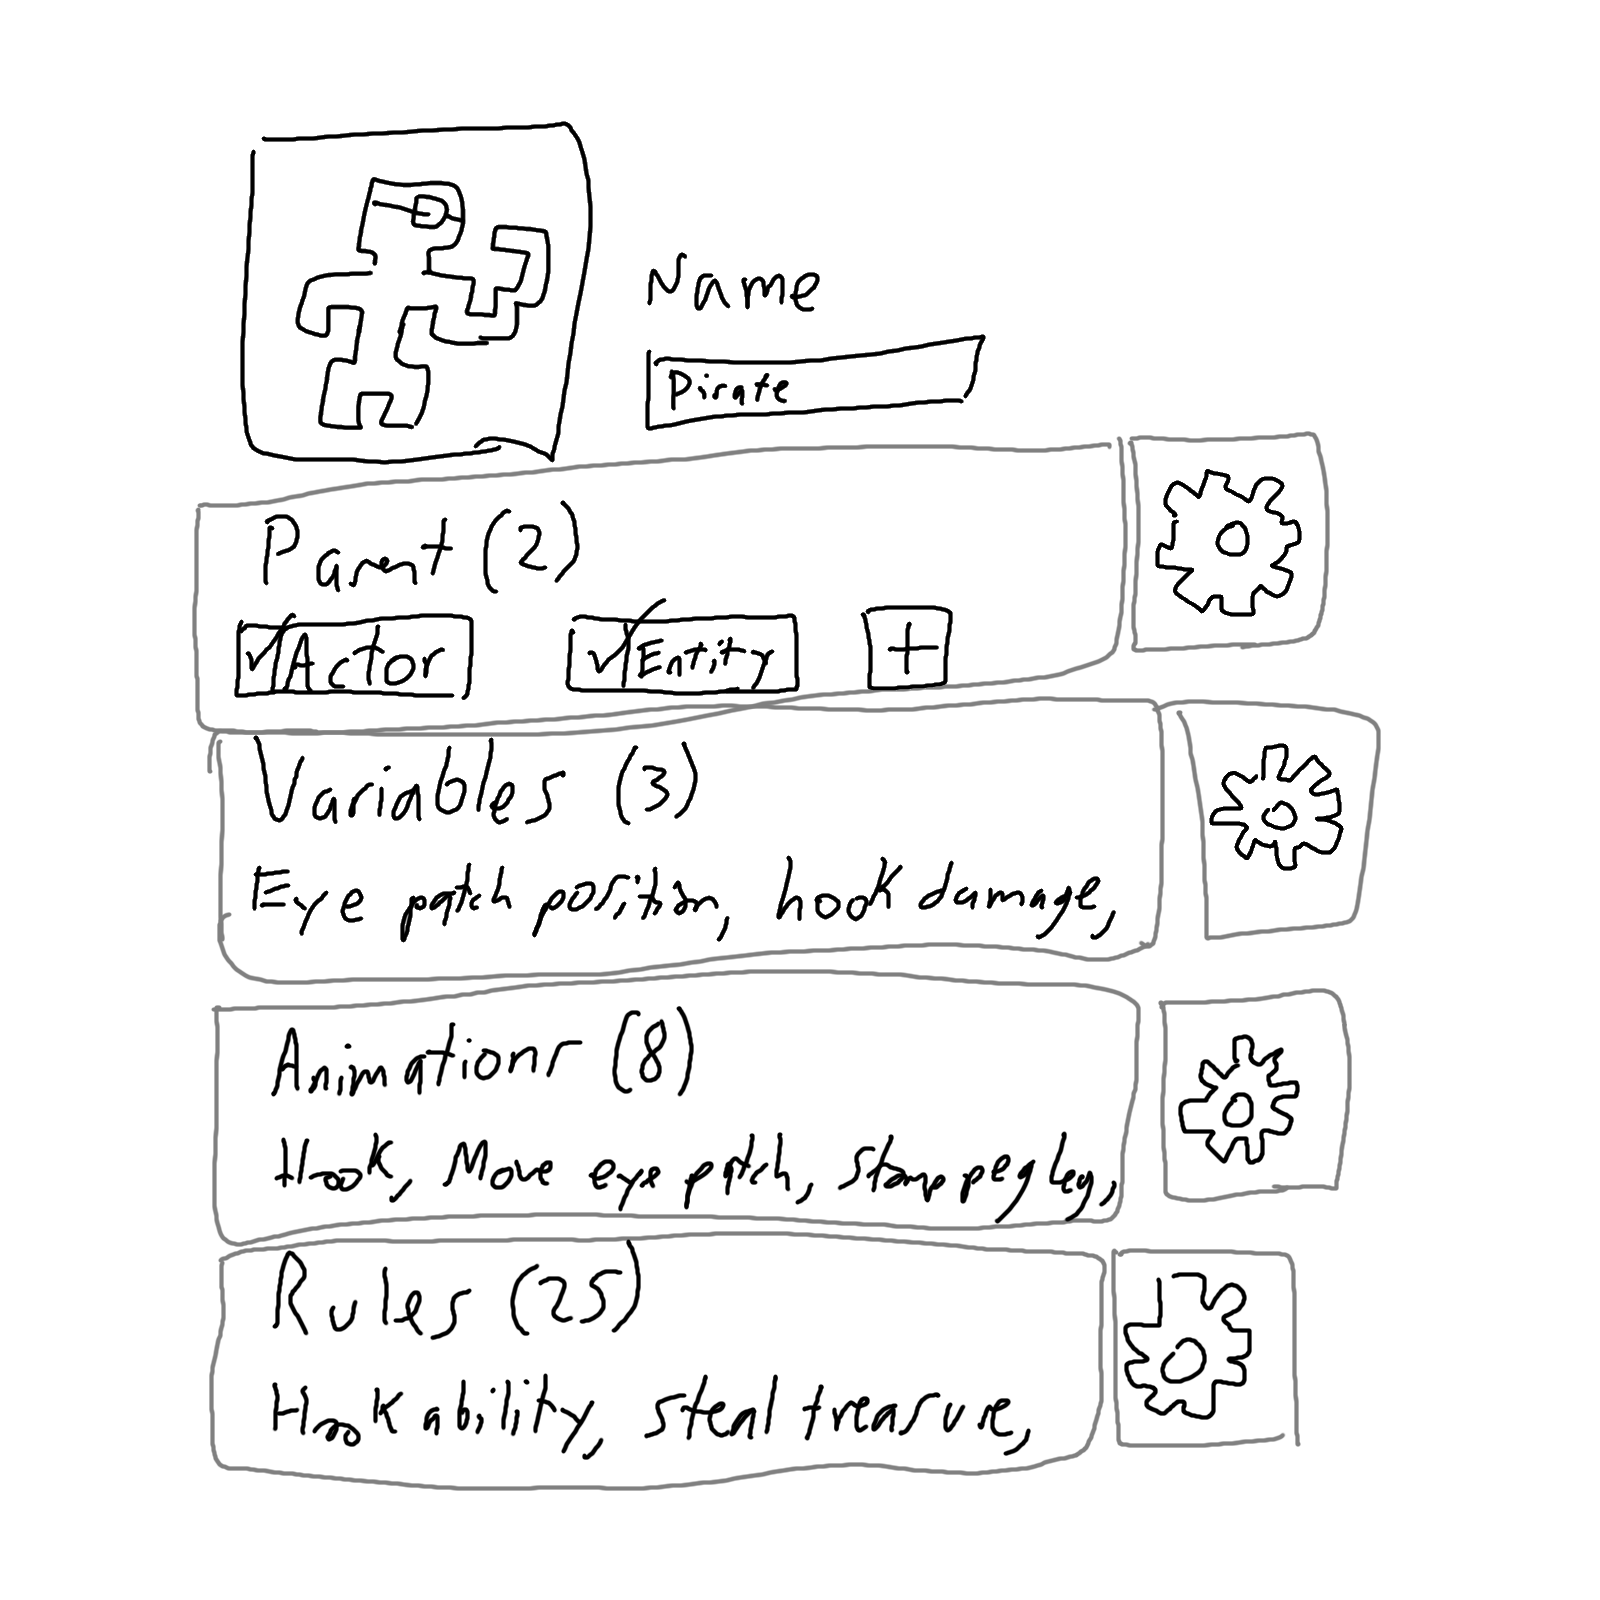 Name
Pirate
Parent (2)
Actor Entity +
Variables (3)
Eye patch position, hook damage,
Animations (8)
Hook, Move eye patch, Stomp peg leg,
Rules (25)
Hook ability, steal treasure,